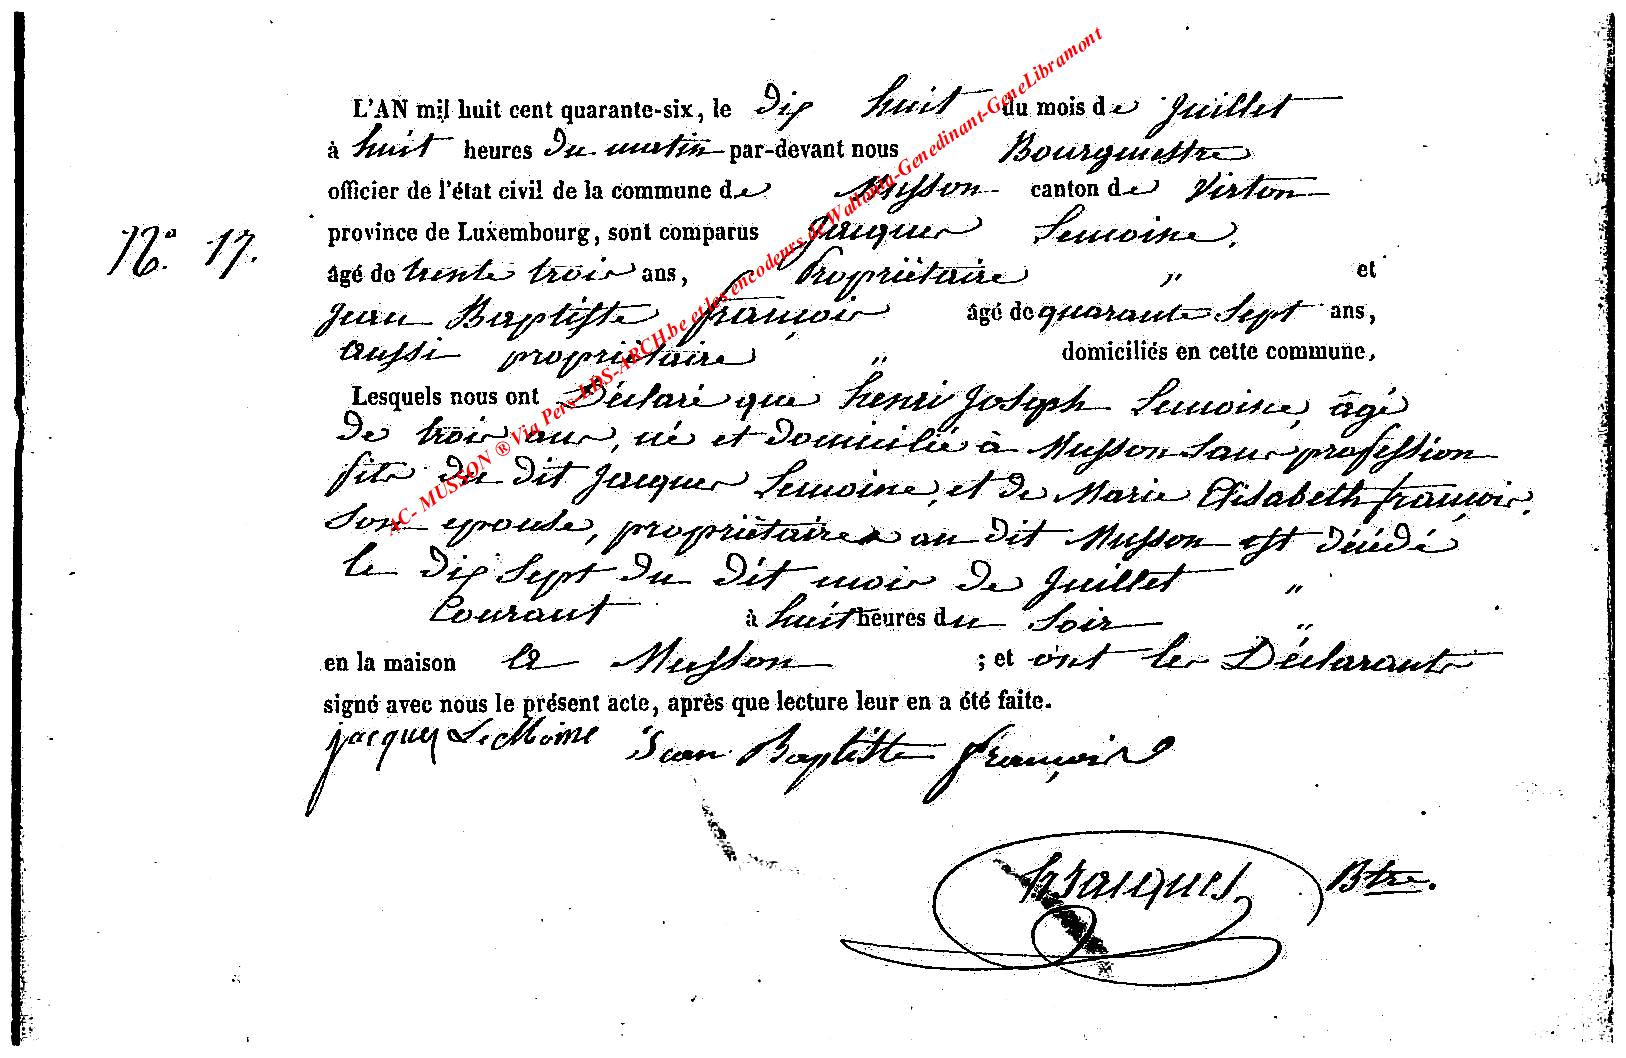 L'AN mil huit cent quarante-six, le dix huit du mois de Juillet
à huit heures du matin par-devant nous Bourgmestre
officier de l'état civil de la commune de Musson canton de Virton
province de Luxembourg, sont comparus Jacques Lemoine,
N.º 17.
âgé de trente trois ans, Propriétaire " et
Jean Baptiste François âgé de quarante Sept ans,
aussi propriétaire " domiciliés en cette commune,
Lesquels nous ont Déclaré que henri Joseph Lemoine, âgé
de trois ans, né et domicilié à Musson Sans profession
fils du dit Jacques Lemoine, et de Marie Elisabeth françois,
Son epouse, propriétaires au dit Musson est décédé
le dix Sept du dit mois de Juillet "
Courant à huit heures du Soir "
en la maison à Musson ; et ont les Déclarants
signé avec nous le présent acte, après que lecture leur en a été faite.
jacques LeMoine Jean Baptiste François
Btre.
AC- MUSSON ® Via Pers-LDS-ARCH.be et les encodeurs de Wallonia-Genedinant-GeneLibramont